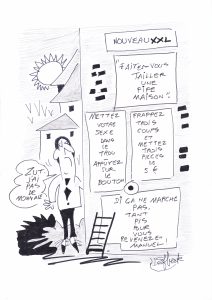 NOUVEAU XXL
FAITES-VOUS
TAILLER
UNE
PIPE
MAISON !!
METTEZ
VOTRE
SEXE
DANS
LE
TROU
APPUYEZ
SUR
LE
BOUTON
FRAPPEZ
TROIS
COUPS
ET
METTEZ
TROIS
PIECES
DE
5 €
SI ÇA NE MARCHE
PAS,
TANT
PIS
POUR
VOUS
REVENEZ-
MANUEL!
ZUT!
J'AI
PAS DE
MONNAIE